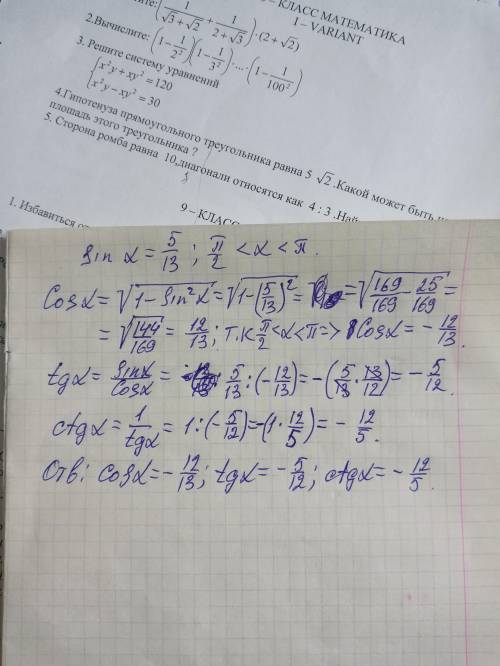 9 – КЛАСС МАТЕМАТИКА
I – VARIANT
(1/(√3+√2) + 1/(2+√3)) · (2+√2)
2.Вычислите: (1 − 1/2²)(1 − 1/3²)·...·(1 − 1/100²)
3. Решите систему уравнений
{x²y + xy² = 120
x²y − xy² = 30
4.Гипотенуза прямоугольного треугольника равна 5 √2 .Какой может быть
площадь этого треугольника ?
5. Сторона ромба равна 10,диагонали относятся как 4 : 3 .Най
9 – КЛАСС
1. Избавиться от
Sin α = 5/13 ; π/2 < α < π.
Cos α = √(1 − Sin²α) = √(1 − (5/13)²) = = √(169/169 − 25/169) =
= √(144/169) = 12/13 ; т.к π/2 < α < π => Cos α = − 12/13.
tg α = Sinα/Cosα = 5/13 : (− 12/13) = −(5/13 · 13/12) = − 5/12.
ctg α = 1/tgα = 1 : (− 5/12) = −(1 · 12/5) = − 12/5.
Отв: cos α = − 12/13 ; tg α = − 5/12 ; ctg α = − 12/5.